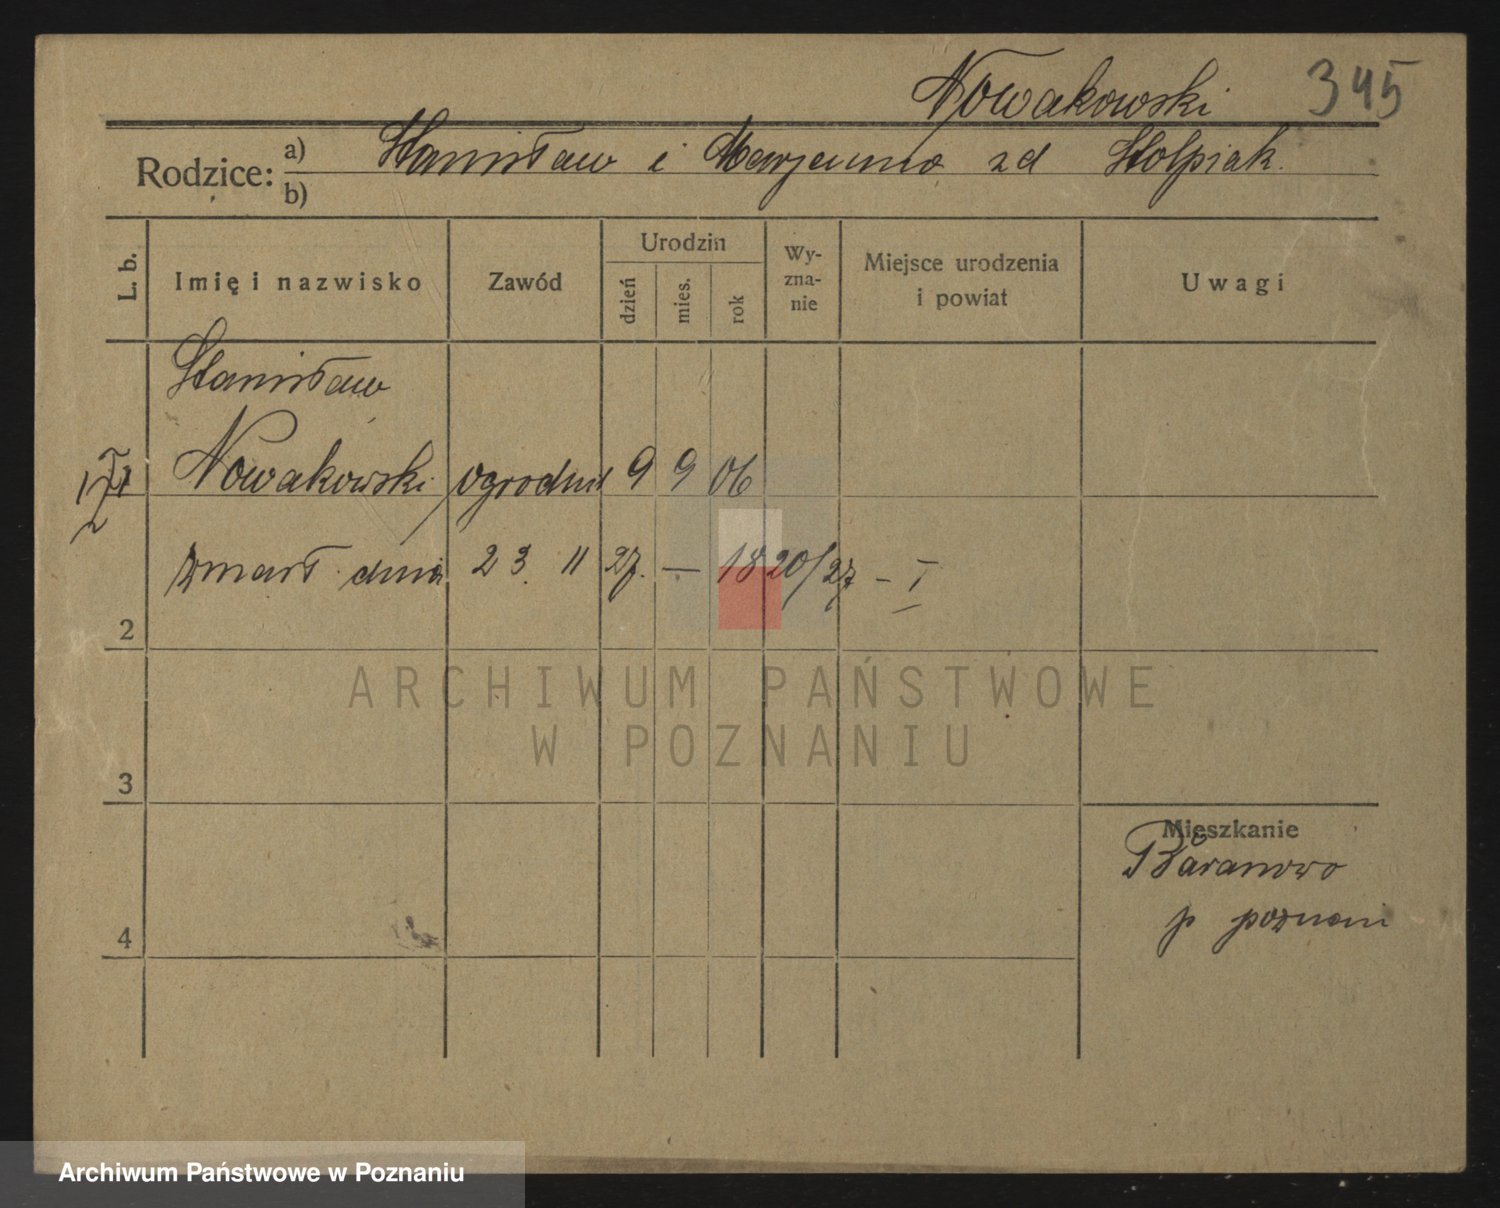 Nowakowski 345
Rodzice: a) b) Stanisław i Marjanna zd Stolpiak.
L. b. Imię i nazwisko Zawód Urodzin dzień mies. rok Wyznanie Miejsce urodzenia i powiat Uwagi
Stanisław
Nowakowski ogrodnik 9 9 06
zmarł dnia 23. 11 27. — 1820/27 – I
2
ARCHIWUM PAŃSTWOWE
W POZNANIU
3
Mieszkanie
Baranowo
p poznań
4
Archiwum Państwowe w Poznaniu